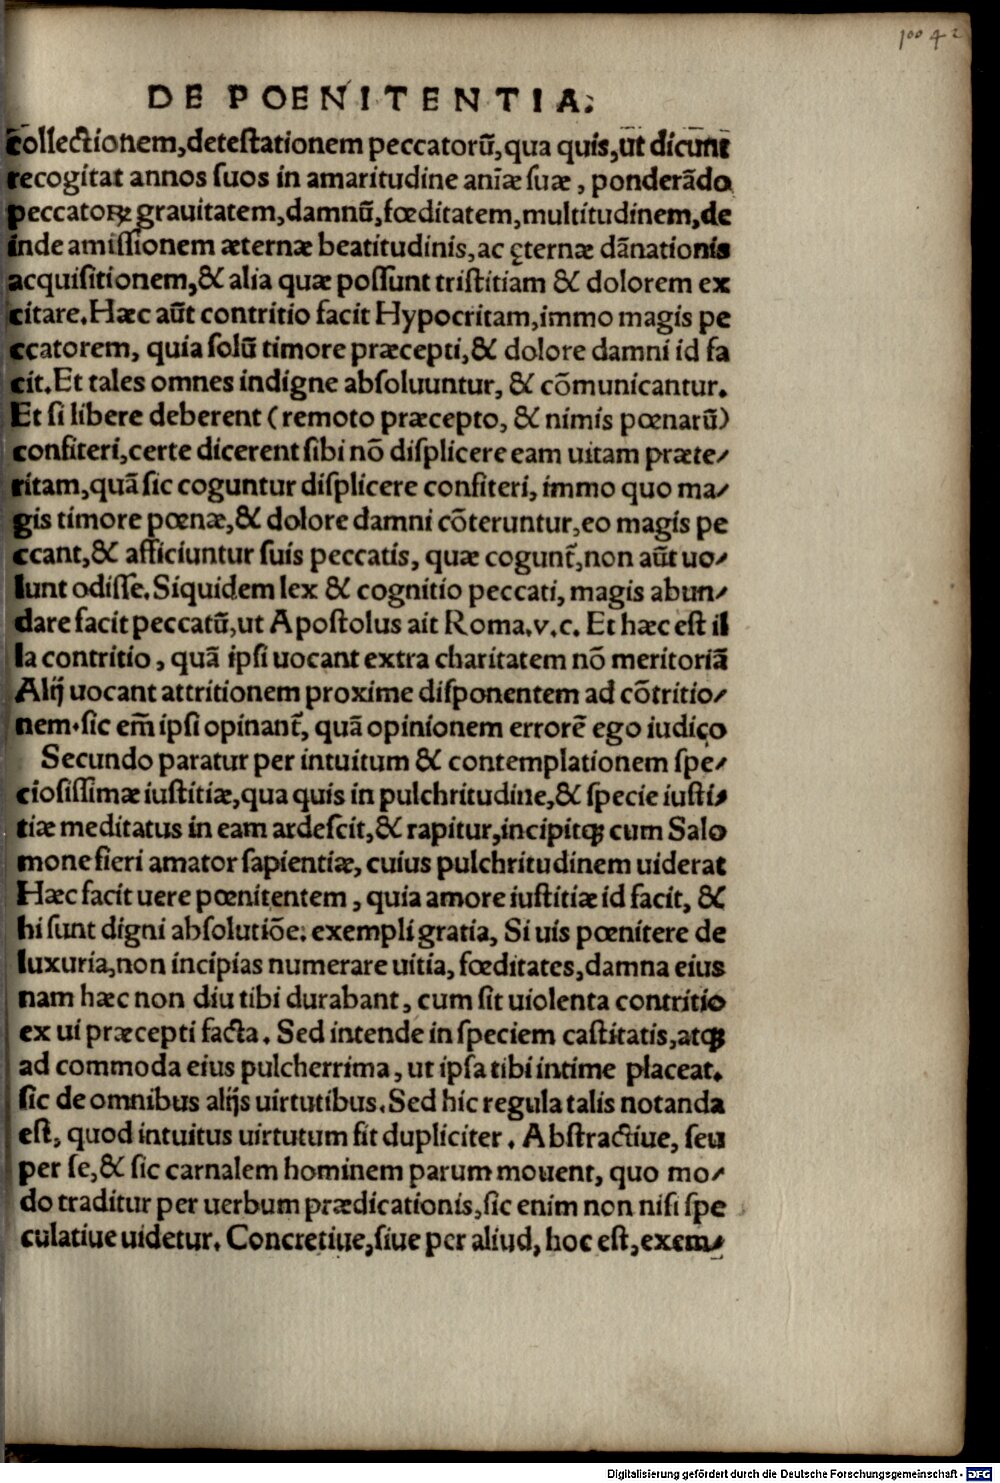 100 42
DE POENITENTIA.
collectionem,detestationem peccatorū,qua quis,ūt dicūnt
recogitat annos suos in amaritudine anīæ suæ, ponderādo
peccatorꝝ grauitatem,damnū,fœditatem,multitudinem,de
inde amissionem æternæ beatitudinis,ac ęternæ dānationis
acquisitionem,& alia quæ possunt tristitiam & dolorem ex
citare.Hæc aūt contritio facit Hypocritam,immo magis pe
ccatorem, quia solū timore præcepti,& dolore damni id fa
cit.Et tales omnes indigne absoluuntur, & cōmunicantur.
Et si libere deberent (remoto præcepto, & nimis pœnarū)
confiteri,certe dicerent sibi nō displicere eam uitam præte/
ritam,quā sic coguntur displicere confiteri, immo quo ma/
gis timore pœnæ,& dolore damni cōteruntur,eo magis pe
ccant,& afficiuntur suis peccatis, quæ cogunt̃,non aūt uo/
lunt odisse.Siquidem lex & cognitio peccati, magis abun/
dare facit peccatū,ut Apostolus ait Roma.v.c. Et hæc est il
la contritio, quā ipsi uocant extra charitatem nō meritoriā
Alij uocant attritionem proxime disponentem ad cōtritio/
nem.sic em̄ ipsi opinant̃, quā opinionem errorē ego iudico
Secundo paratur per intuitum & contemplationem spe/
ciosissimæ iustitiæ,qua quis in pulchritudine,& specie iusti/
tiæ meditatus in eam ardescit,& rapitur,incipitꝗ cum Salo
mone fieri amator sapientiæ, cuius pulchritudinem uiderat
Hæc facit uere pœnitentem, quia amore iustitiæ id facit, &
hi sunt digni absolutiōe. exempli gratia, Si uis pœnitere de
luxuria,non incipias numerare uitia, fœditates,damna eius
nam hæc non diu tibi durabant, cum sit uiolenta contritio
ex ui præcepti facta. Sed intende in speciem castitatis,atꝗ
ad commoda eius pulcherrima, ut ipsa tibi intime placeat.
sic de omnibus alijs uirtutibus.Sed hic regula talis notanda
est, quod intuitus uirtutum fit dupliciter. Abstractiue, seu
per se,& sic carnalem hominem parum mouent, quo mo/
do traditur per uerbum prædicationis,sic enim non nisi spe
culatiue uidetur. Concretiue,siue per aliud, hoc est,exem/
Digitalisierung gefördert durch die Deutsche Forschungsgemeinschaft - DFG